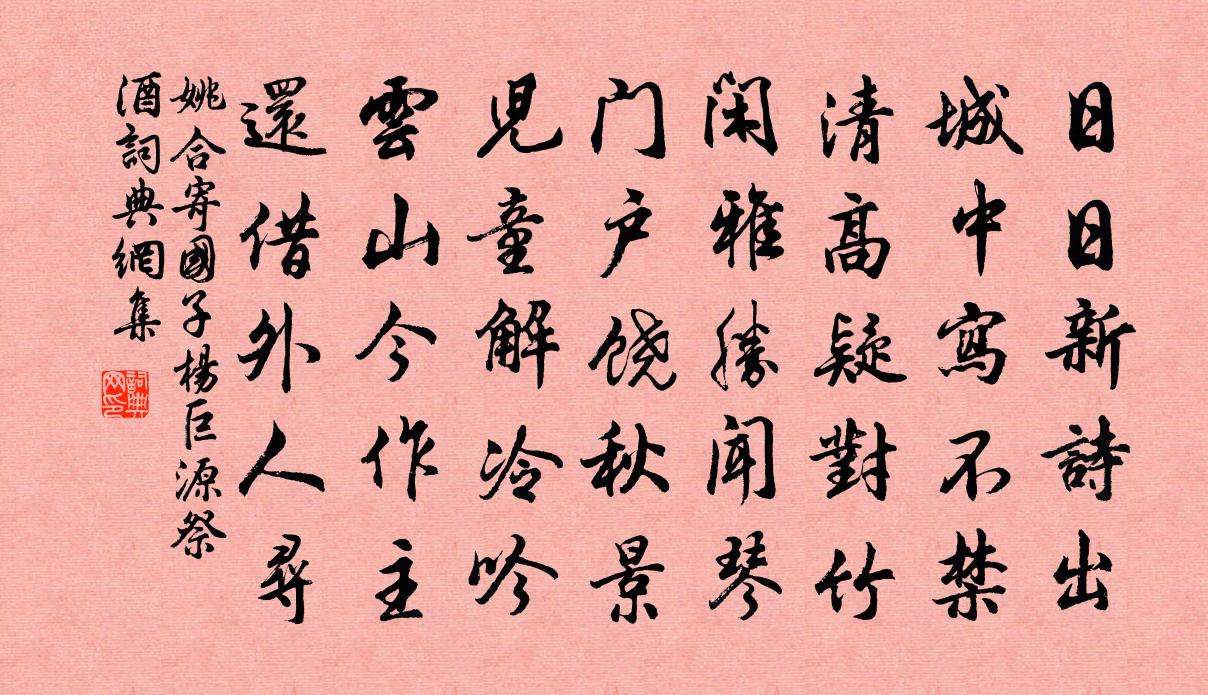 日日新詩出
城中寫不禁
清高疑對竹
閑雅勝聞琴
门户饶秋景
児童解冷吟
雲山今作主
還借外人尋
姚合寄國子楊巨源祭
酒詞典網集
詞典
网印